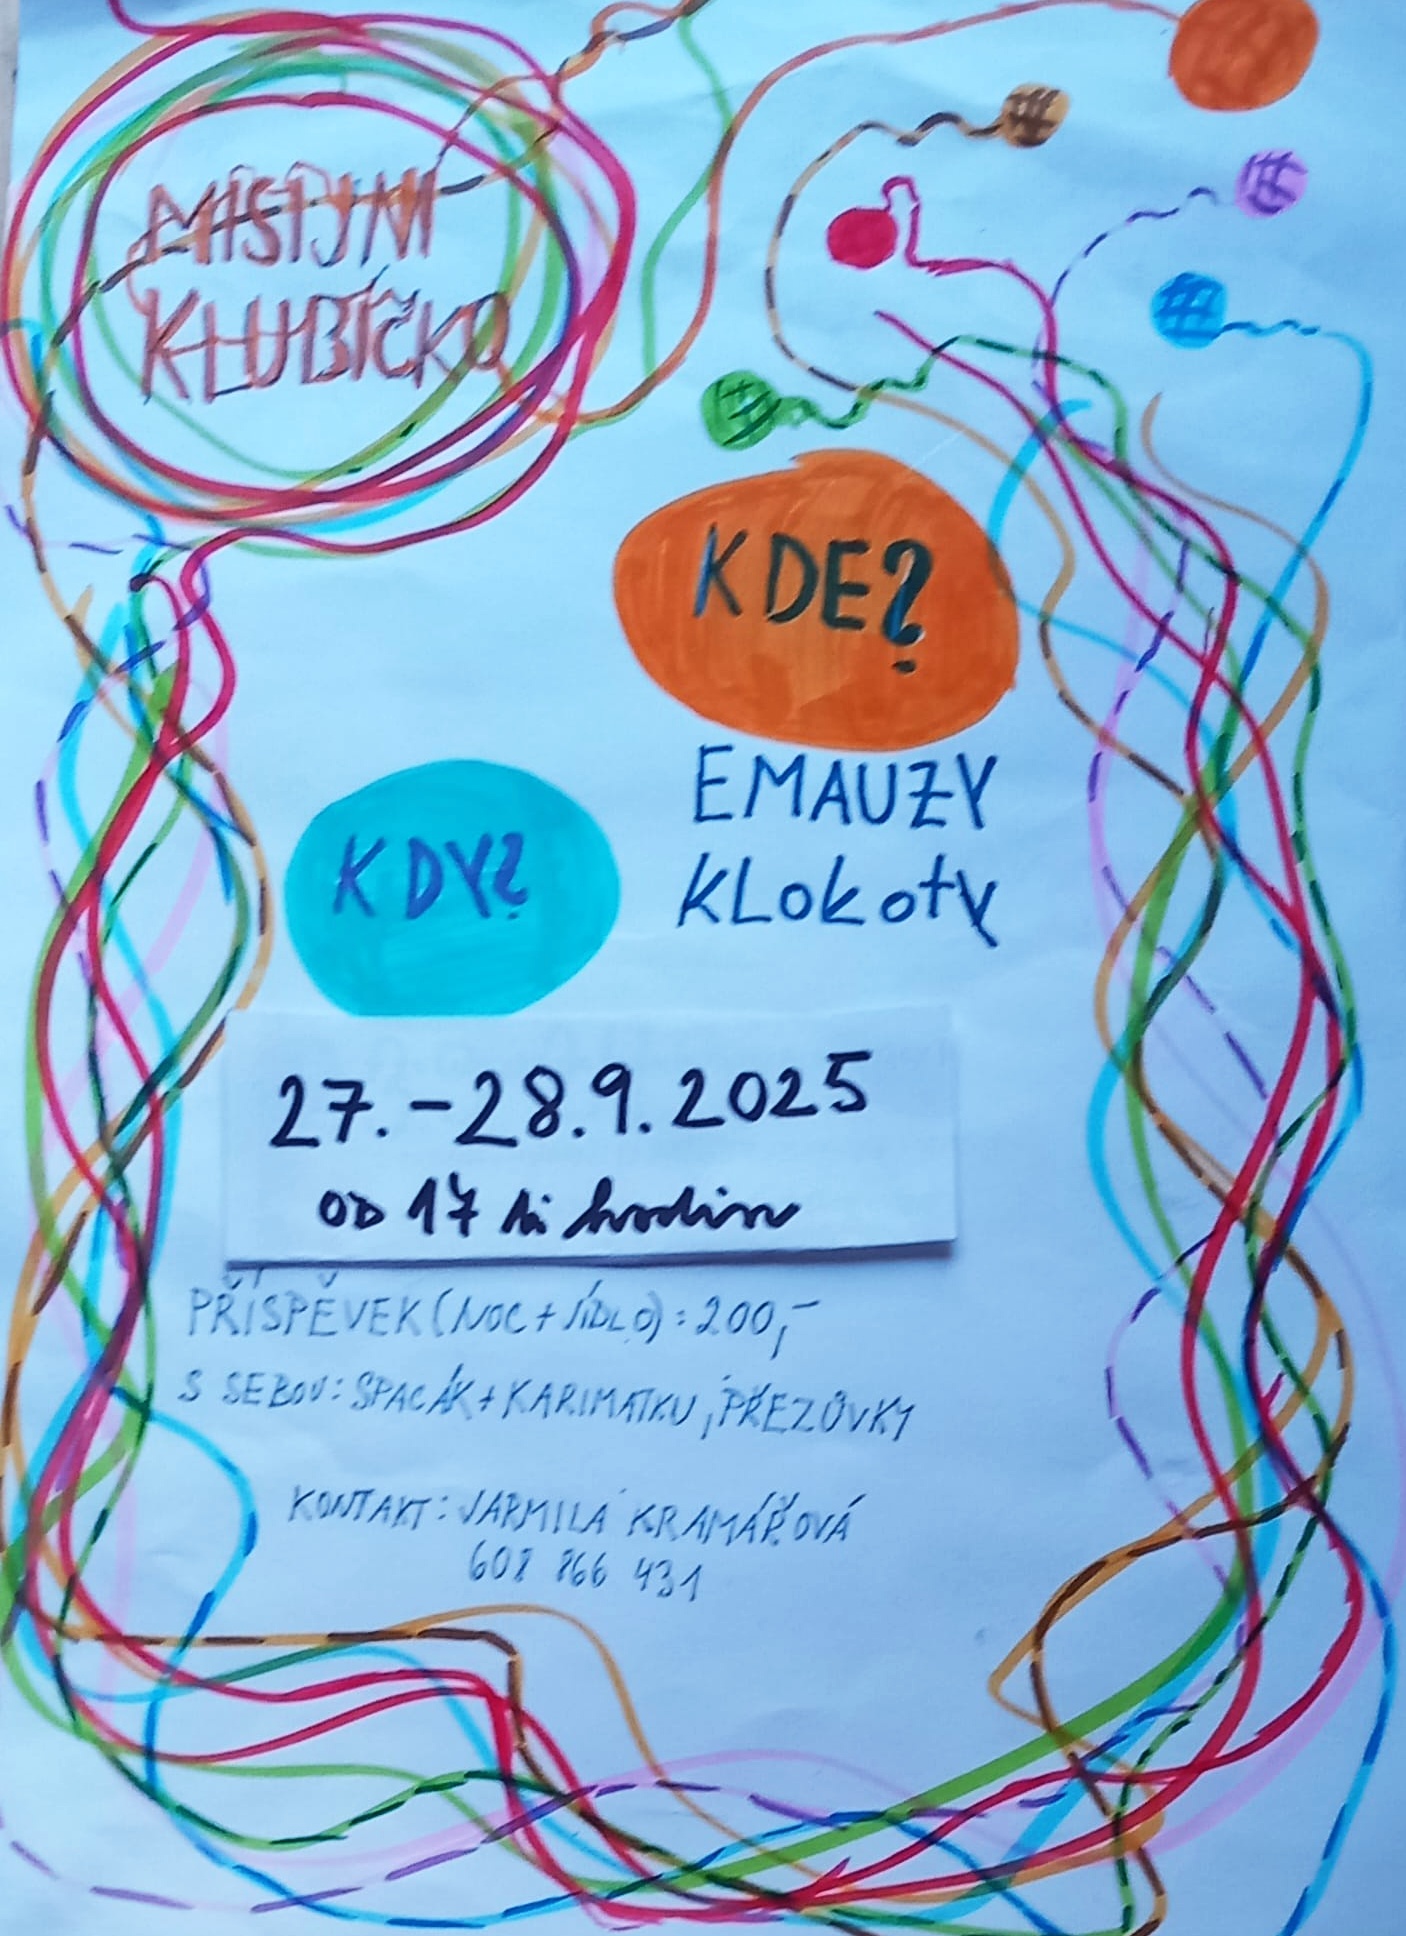 MISIJNÍ
KLUBÍČKO
KDE?
EMAUZY
KLOKOTY
KDY?
27.-28.9.2025
OD 17 ti hodin
PŘÍSPĚVEK (NOC + JÍDLO): 200,-
S SEBOU: SPACÁK + KARIMATKU, PŘEZŮVKY
KONTAKT: JARMILA KRAMÁŘOVÁ
608 866 431